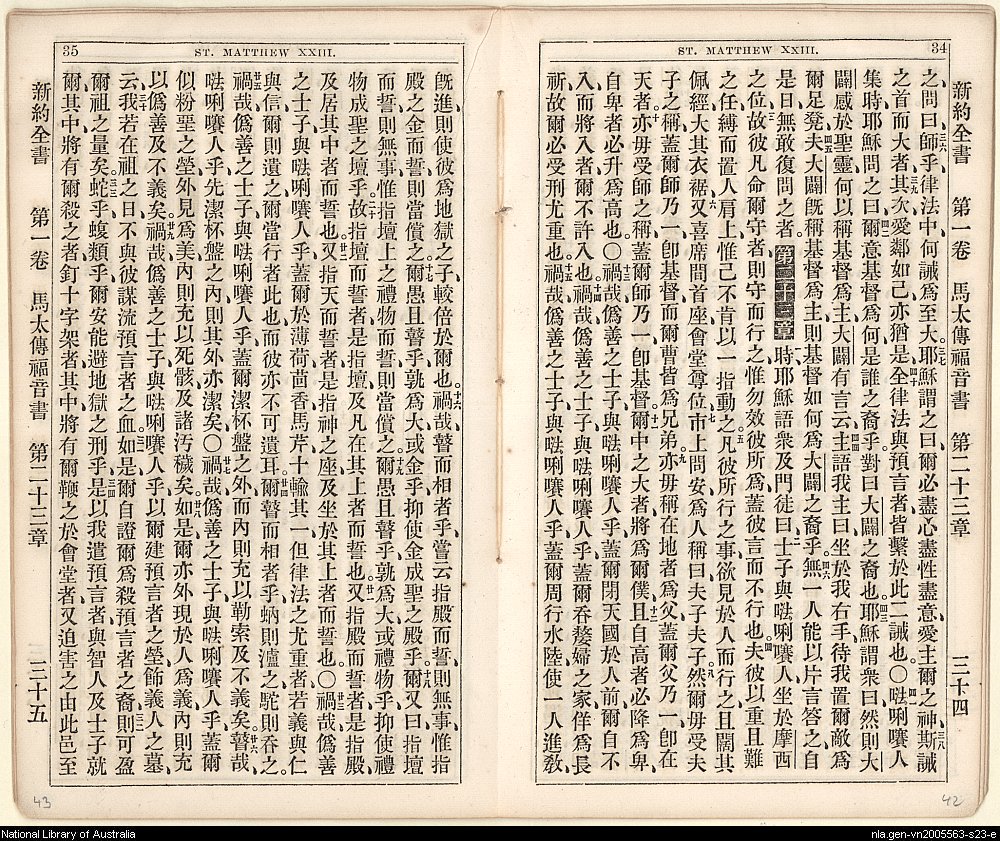 34
ST. MATTHEW XXIII.
新約全書 第一卷 馬太傳福音書 第二十三章 三十四
之問曰師乎律法中何誡為至大耶穌謂之曰爾必盡心盡性盡意愛主爾之神斯誡
之首而大者其次愛鄰如己亦猶是全律法與預言者皆繫於此二誡也〇𠵽唎㘔人
集時耶穌問之曰爾意基督為何是誰之裔乎對曰大闢之裔也耶穌謂衆曰然則大
闢感於聖靈何以稱基督為主大闢有言云主語我主曰坐於我右手待我置爾敵為
爾足凳夫大闢旣稱基督為主則基督如何為大闢之裔乎無一人能以片言答之自
是日無敢復問之者 第二十三章 時耶穌語衆及門徒曰士子與𠵽唎㘔人坐於摩西
之位故彼凡命爾守者則守而行之惟勿效彼所為蓋彼言而不行也夫彼以重且難
之任縛而置人肩上惟己不肯以一指動之凡彼所行之事欲見於人而行之且闊其
佩經大其衣裾又喜席間首座會堂尊位市上問安為人稱曰夫子夫子然爾毋受夫
子之稱蓋爾師乃一卽基督而爾曹皆為兄弟亦毋稱在地者為父蓋爾父乃一卽在
天者亦毋受師之稱蓋爾師乃一卽基督爾中之大者將為爾僕且自高者必降為卑
自卑者必升為高也〇禍哉偽善之士子與𠵽唎㘔人乎蓋爾閉天國於人前爾自不
入而將入者爾不許入也禍哉偽善之士子與𠵽唎㘔人乎蓋爾吞嫠婦之家佯為長
祈故爾必受刑尤重也禍哉偽善之士子與𠵽唎㘔人乎蓋爾周行水陸使一人進敎
35
ST. MATTHEW XXIII.
旣進則使彼為地獄之子較倍於爾也禍哉瞽而相者乎嘗云指殿而誓則無事惟指
殿之金而誓則當償之爾愚且瞽乎孰為大或金乎抑使金成聖之殿乎爾又曰指壇
而誓則無事惟指壇上之禮物而誓則當償之爾愚且瞽乎孰為大或禮物乎抑使禮
物成聖之壇乎故指壇而誓者是指壇及凡在其上者而誓也又指殿而誓者是指殿
及居其中者而誓也又指天而誓者是指神之座及坐於其上者而誓也〇禍哉偽善
之士子與𠵽唎㘔人乎蓋爾於薄荷茴香馬芹十輸其一但律法之尤重者若義與仁
與信爾則遺之爾當行者此也而彼亦不可遺耳爾瞽而相者乎蚋則濾之駝則吞之
禍哉偽善之士子與𠵽唎㘔人乎蓋爾潔杯盤之外而內則充以勒索及不義矣瞽哉
𠵽唎㘔人乎先潔杯盤之內則其外亦潔矣〇禍哉偽善之士子與𠵽唎㘔人乎蓋爾
似粉堊之塋外見為美內則充以死骸及諸汚穢矣如是爾亦外現於人為義內則充
以偽善及不義矣禍哉偽善之士子與𠵽唎㘔人乎以爾建預言者之塋飾義人之墓
云我若在祖之日不與彼謀流預言者之血如是爾自證爾為殺預言者之裔則可盈
爾祖之量矣蛇乎蝮類乎爾安能避地獄之刑乎是以我遣預言者與智人及士子就
爾其中將有爾殺之者釘十字架者其中將有爾鞭之於會堂者又迫害之由此邑至
新約全書 第一卷 馬太傳福音書 第二十三章 三十五
43
42
National Library of Australia
nla.gen-vn2005563-s23-e